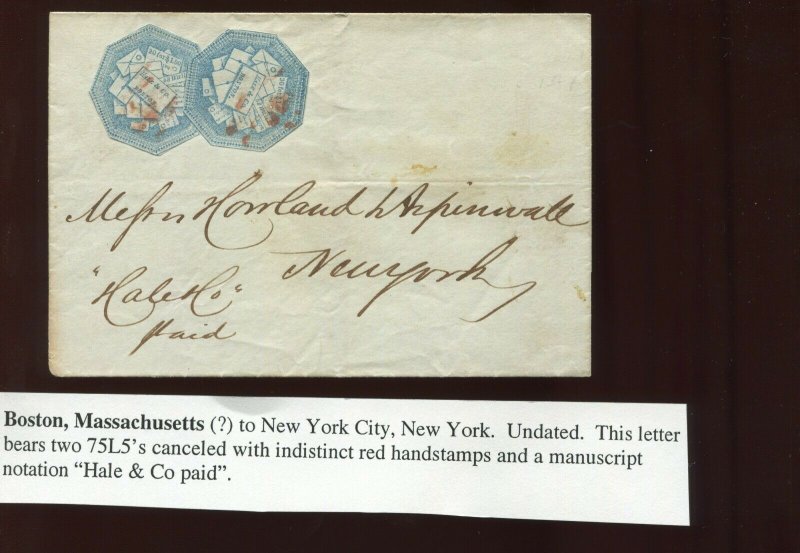 HALE & CO.
BOSTON.
HALE & CO.
BOSTON.
Messrs Howland & Aspinwall
New York
"Hale & Co"
paid
Boston, Massachusetts (?) to New York City, New York.  Undated.  This letter
bears two 75L5's canceled with indistinct red handstamps and a manuscript
notation “Hale & Co paid”.